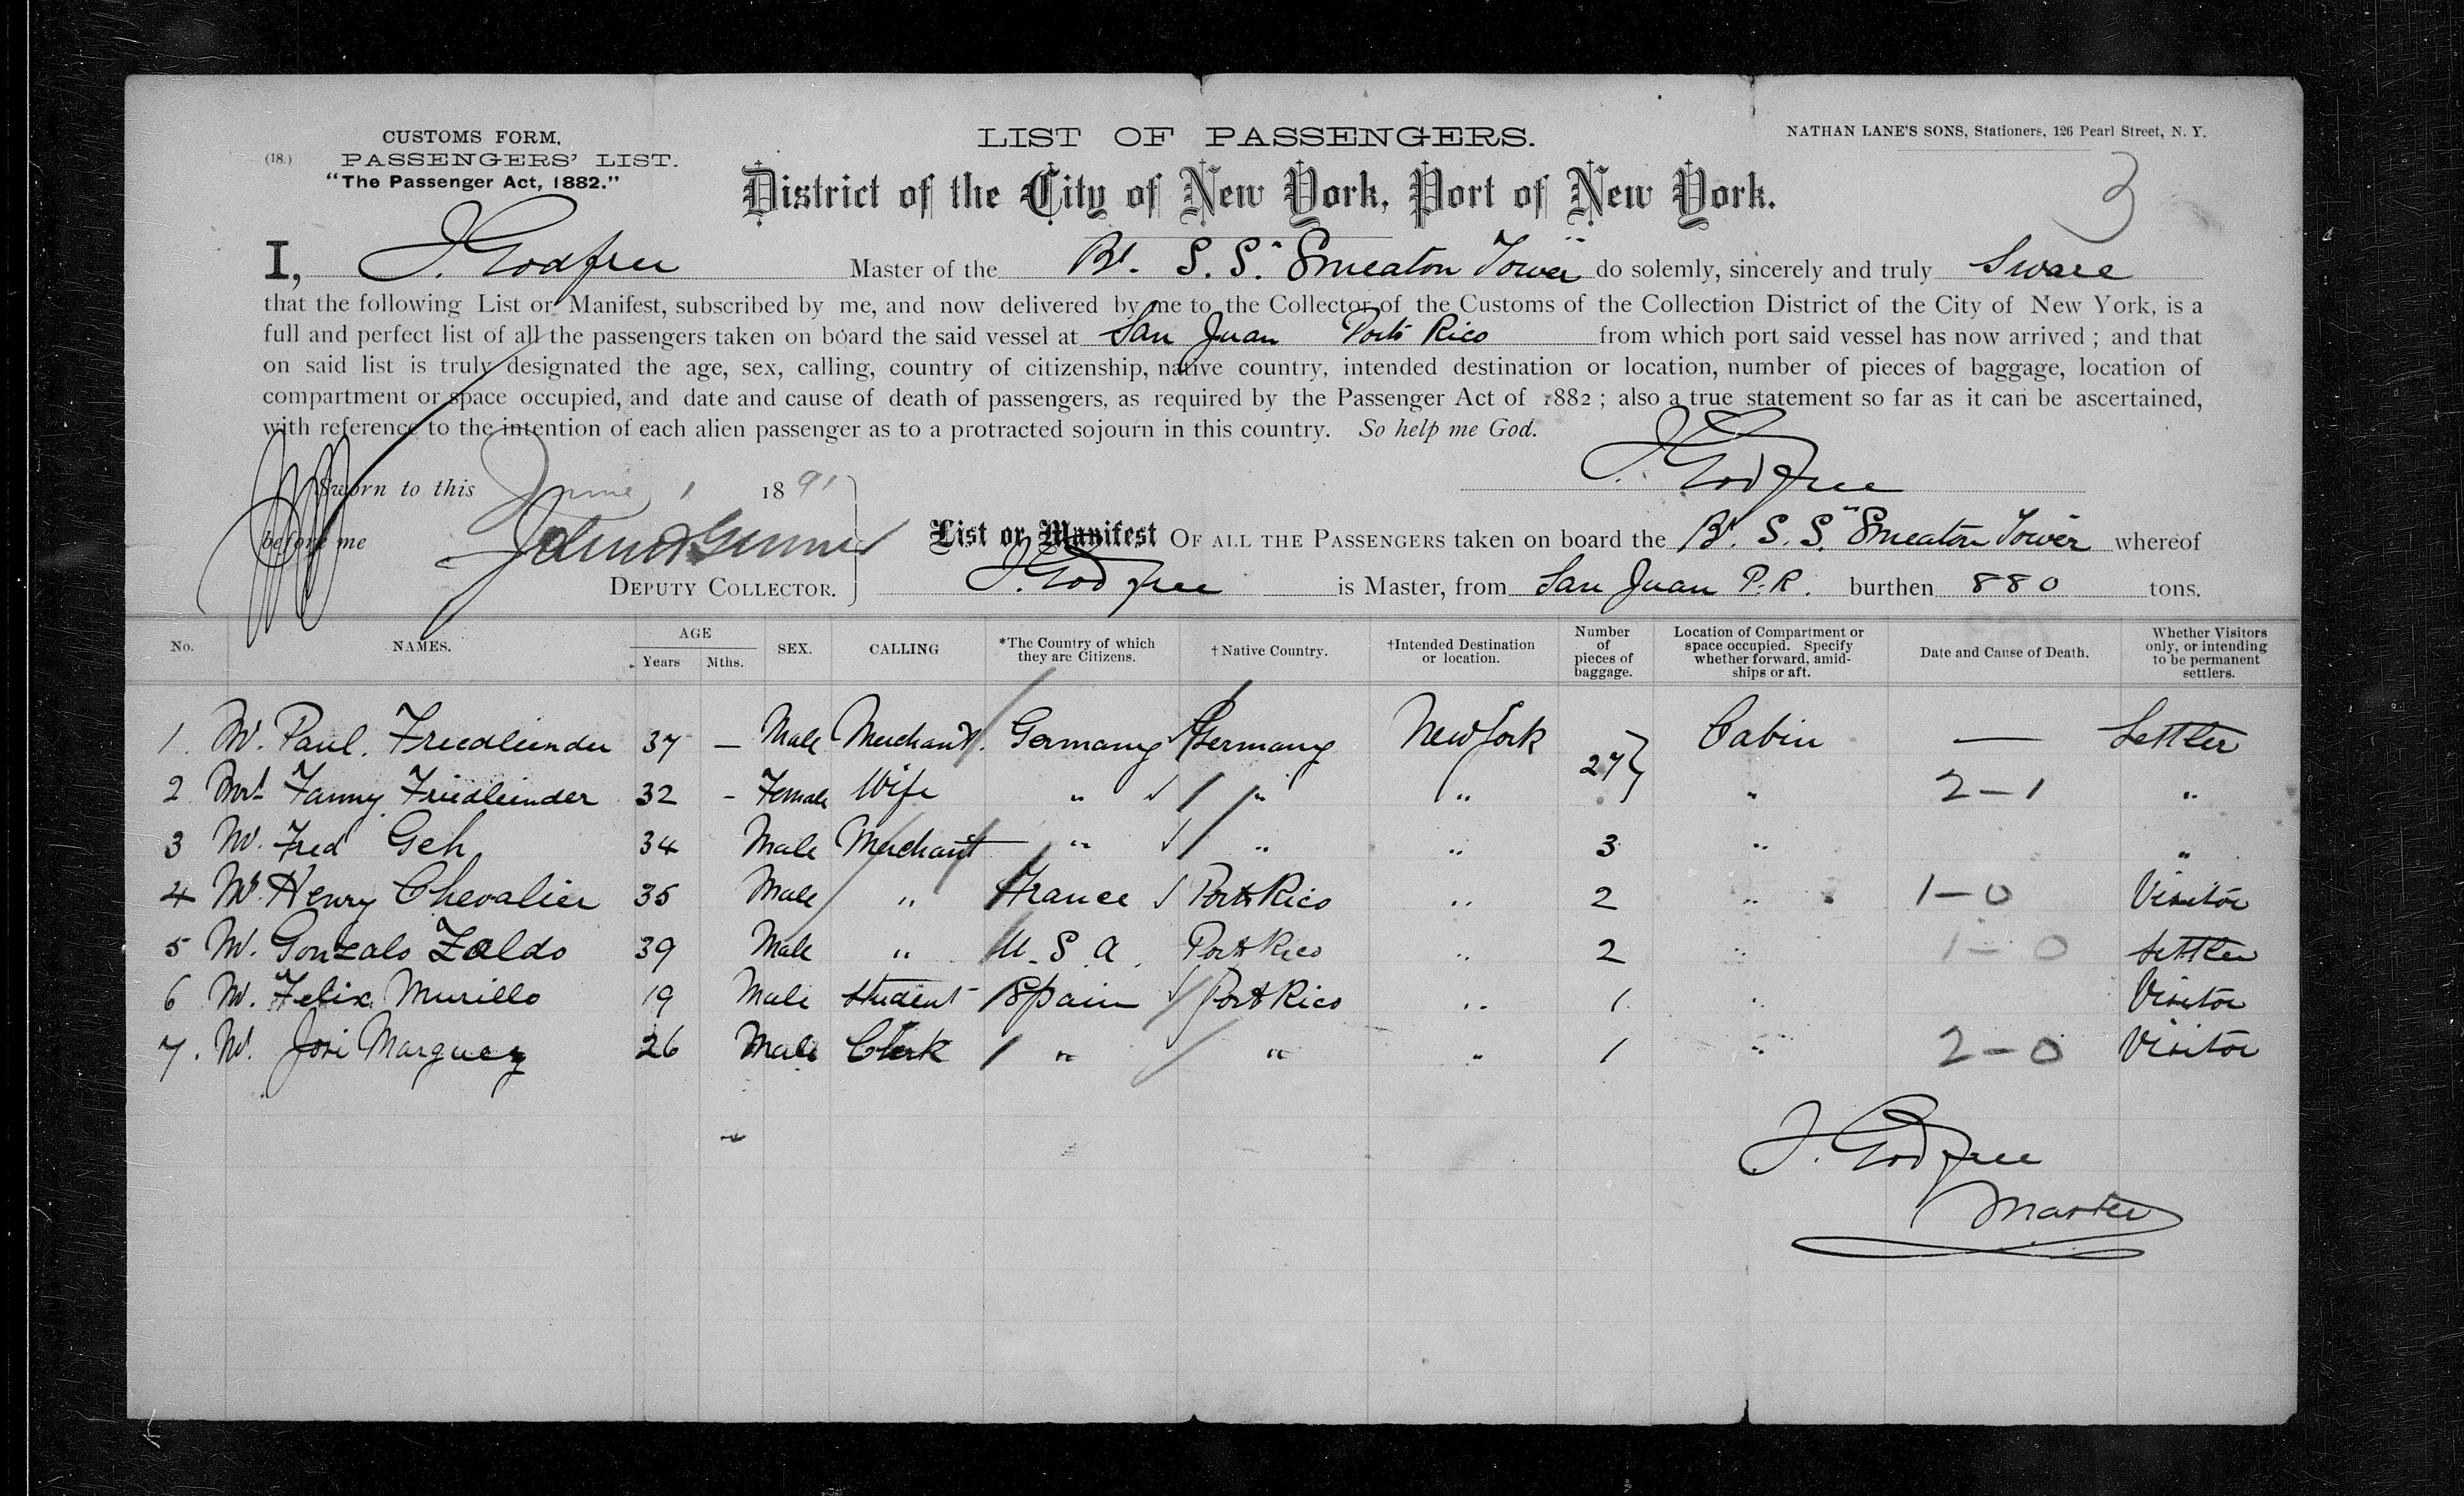 CUSTOMS FORM.
(18.) PASSENGERS' LIST.
"The Passenger Act, 1882."
LIST OF PASSENGERS.
NATHAN LANE'S SONS, Stationers, 126 Pearl Street, N. Y.
3
District of the City of New York, Port of New York.
I, J. Godfree Master of the Br. S. S. "Smeaton Tower" do solemnly, sincerely and truly Sware
that the following List or Manifest, subscribed by me, and now delivered by me to the Collector of the Customs of the Collection District of the City of New York, is a
full and perfect list of all the passengers taken on board the said vessel at San Juan Porto Rico from which port said vessel has now arrived ; and that
on said list is truly designated the age, sex, calling, country of citizenship, native country, intended destination or location, number of pieces of baggage, location of
compartment or space occupied, and date and cause of death of passengers, as required by the Passenger Act of 1882 ; also a true statement so far as it can be ascertained,
with reference to the intention of each alien passenger as to a protracted sojourn in this country. So help me God.
J. Godfree
Sworn to this June 1 1891
before me
DEPUTY COLLECTOR.
List or Manifest OF ALL THE PASSENGERS taken on board the Br. S. S. "Smeaton Tower" whereof
J. Godfree is Master, from San Juan P. R. burthen 880 tons.
No. NAMES. AGE Years Mths. SEX. CALLING *The Country of which they are Citizens. † Native Country. †Intended Destination or location. Number of pieces of baggage. Location of Compartment or space occupied. Specify whether forward, amid-ships or aft. Date and Cause of Death. Whether Visitors only, or intending to be permanent settlers.
1. Mr. Paul. Friedleinder 37 — Male Merchant. Germany Germany New York 27} Cabin — Settler
2 Mrs Fanny Friedleinder 32 - Female Wife " " " " 2-1 "
3 Mr. Fred Geh 34 Male Merchant " " " 3 " "
4 Mr. Henry Chevalier 35 Male " France Porto Rico " 2 " 1-0 Visitor
5 Mr. Gonzalo Zaldo 39 Male " U. S. A. Porto Rico " 2 " 1-0 Settler
6 Mr. Felix Murillo 19 Male Student Spain Porto Rico " 1 " Visitor
7. Mr. José Marquez 26 Male Clerk " " " 1 " 2-0 Visitor
J. Godfree
Master